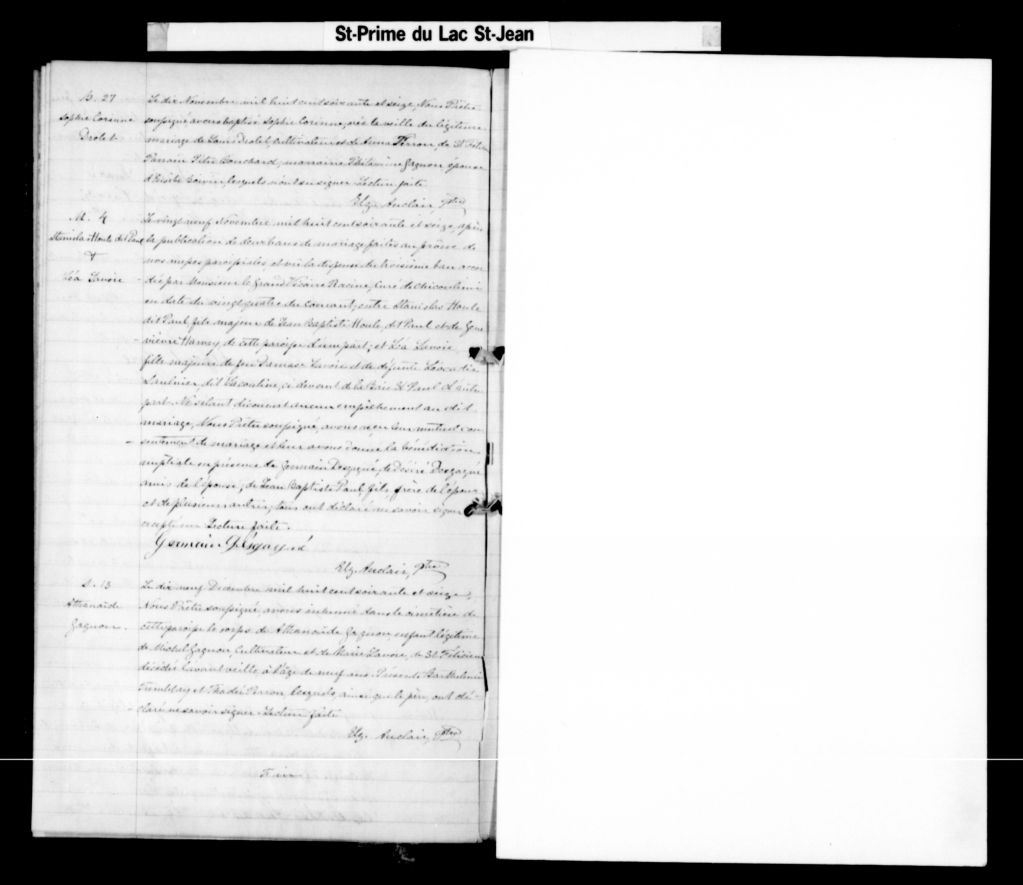 St-Prime du Lac St-Jean
B. 27
Sophie Corinne
Drolet
Le dix Novembre mil huit cent soixante et seize, Nous Prêtre
soussigné avons baptisé Sophie Corinne, née la veille du légitime
mariage de Louis Drolet, Cultivateur et de Anna Perron, de St Féli
Parrain Pitre Bouchard, marraine Philomène Gagnon, épouse
lesquels n'ont su signer. Lecture faite.
Elz. Auclair, Ptre
M. 4
Stanislas Houle dit Paul
&
Léa Lavoie
Le vingt neuf Novembre mil huit cent soixante et seize, après
la publication de deux bans de mariage faites au prône de
nos messes paroissiales, et vu la dispense du troisième ban accor
dée par Monsieur le Grand Vicaire Racine, Curé de Chicoutimi
en date du vingt quatre du courant, entre Stanislas Houle
dit Paul, fils majeur de Jean Baptiste Houle, dit Paul et de Gene
viève Harvey de cette paroisse d'une part; et Léa Lavoie
fille majeure de feu Damase Lavoie et de défunte Léocadie
Saulnier, ci devant de la Baie St Paul d'autre
part. Ne s'étant découvert aucun empêchement au dit
mariage, Nous Prêtre soussigné, avons reçu leur mutuel con
sentement de mariage et leur avons donné la bénédiction
nuptiale en présence de Germain Desgagné, de Désiré Desgagné
amis de l'épouse; de Jean Baptiste Paul, fils, frère de l'époux
et de plusieurs autres, tous ont déclaré ne savoir signer
excepté un. Lecture faite.
Germain Désgagné
Elz. Auclair, Ptre
S. 13
Athanaïde
Gagnon.
Le dix neuf Décembre mil huit cent soixante et seize,
Nous Prêtre soussigné, avons inhumé dans le cimetière de
cette paroisse le corps de Athanaïde Gagnon enfant légitime
de Michel Gagnon, Cultivateur et de Marie Lavoie, de St Félicien
décédée l'avant veille, à l'âge de neuf ans. Présents Barthelemi
Tremblay et Thadée Perron, lesquels, ainsi que le père, ont dé-
claré ne savoir signer. Lecture faite
Elz. Auclair, Ptre
Fin